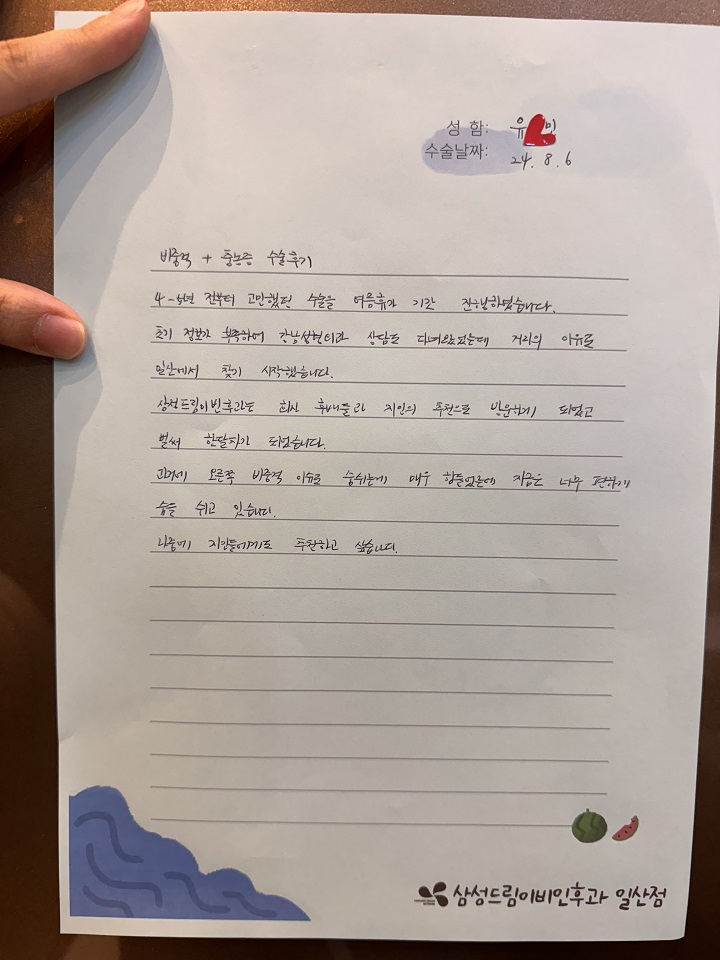 성 함: 유 민
수술날짜: 24. 8. 6
비중격 + 축농증 수술후기
4-5년 전부터 고민했던 수술을 여름휴가 기간 진행하였습니다.
초기 정보가 부족하여 강남 상담도 다녀왔었는데 거리의 이유로
일산에서 찾기 시작했습니다.
삼성드림이비인후과는 회사 후배들과 지인의 추천으로 방문하게 되었고
벌써 한달차가 되었습니다.
과거에 오른쪽 비중격 이슈로 숨쉬는게 매우 힘들었는데 지금은 너무 편하게
숨을 쉬고 있습니다.
나중에 지인들에게도 추천하고 싶습니다.
삼성드림이비인후과 일산점